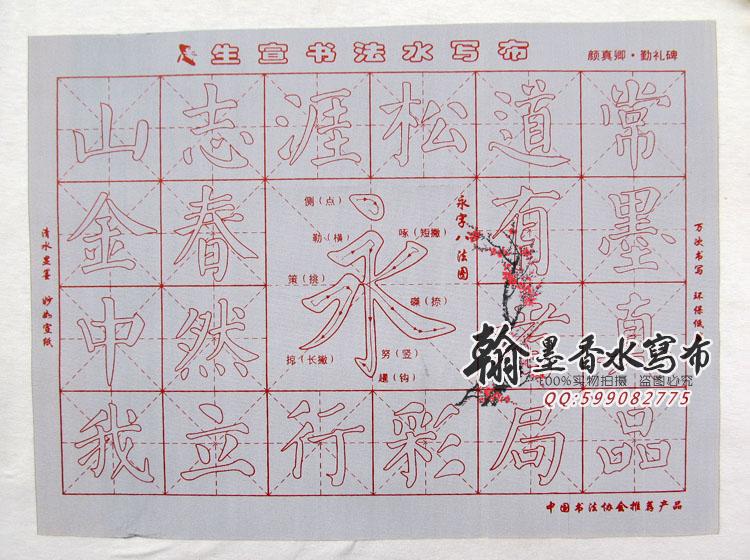 生宣书法水写布
颜真卿·勤礼碑
山志涯松道常
金春有墨
永字八法图
侧（点）
勒（横）
啄（短撇）
策（挑）
永
磔（捺）
掠（长撇）
努（竖）
趯（钩）
中然
我立行彩局品
清水显墨 妙如宣纸
万次书写 环保低
翰墨香水寫布
100%实物拍摄 盗图必究
QQ:599082775
中国书法协会推荐产品